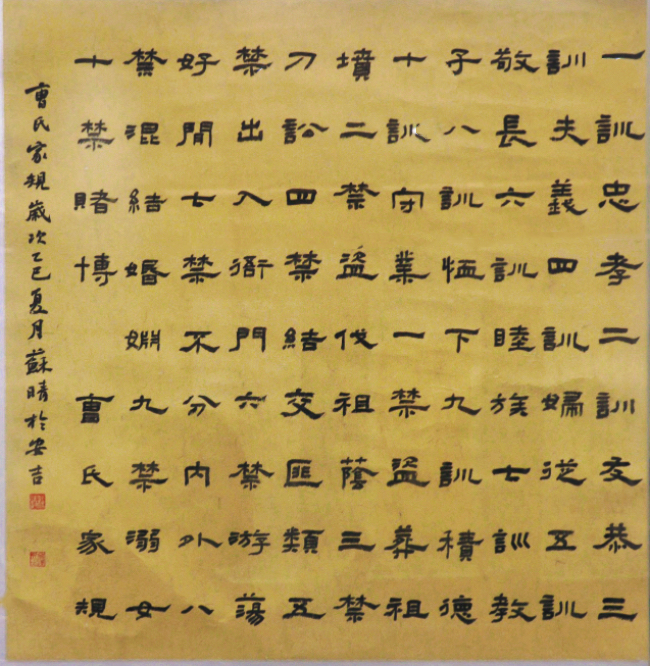 一訓忠孝二訓友恭三
訓夫義四訓婦從五訓
敬長六訓睦族七訓教
子八訓恤下九訓積德
十訓守業一禁盜葬祖
墳二禁盜伐祖蔭三禁
刁訟四禁結交匪類五
禁出入衙門六禁游蕩
好閒七禁不分內外八
禁混結婚姻九禁溺女
十禁賭博 曹氏家規
曹氏家規歲次乙巳夏月蘇晴於安吉